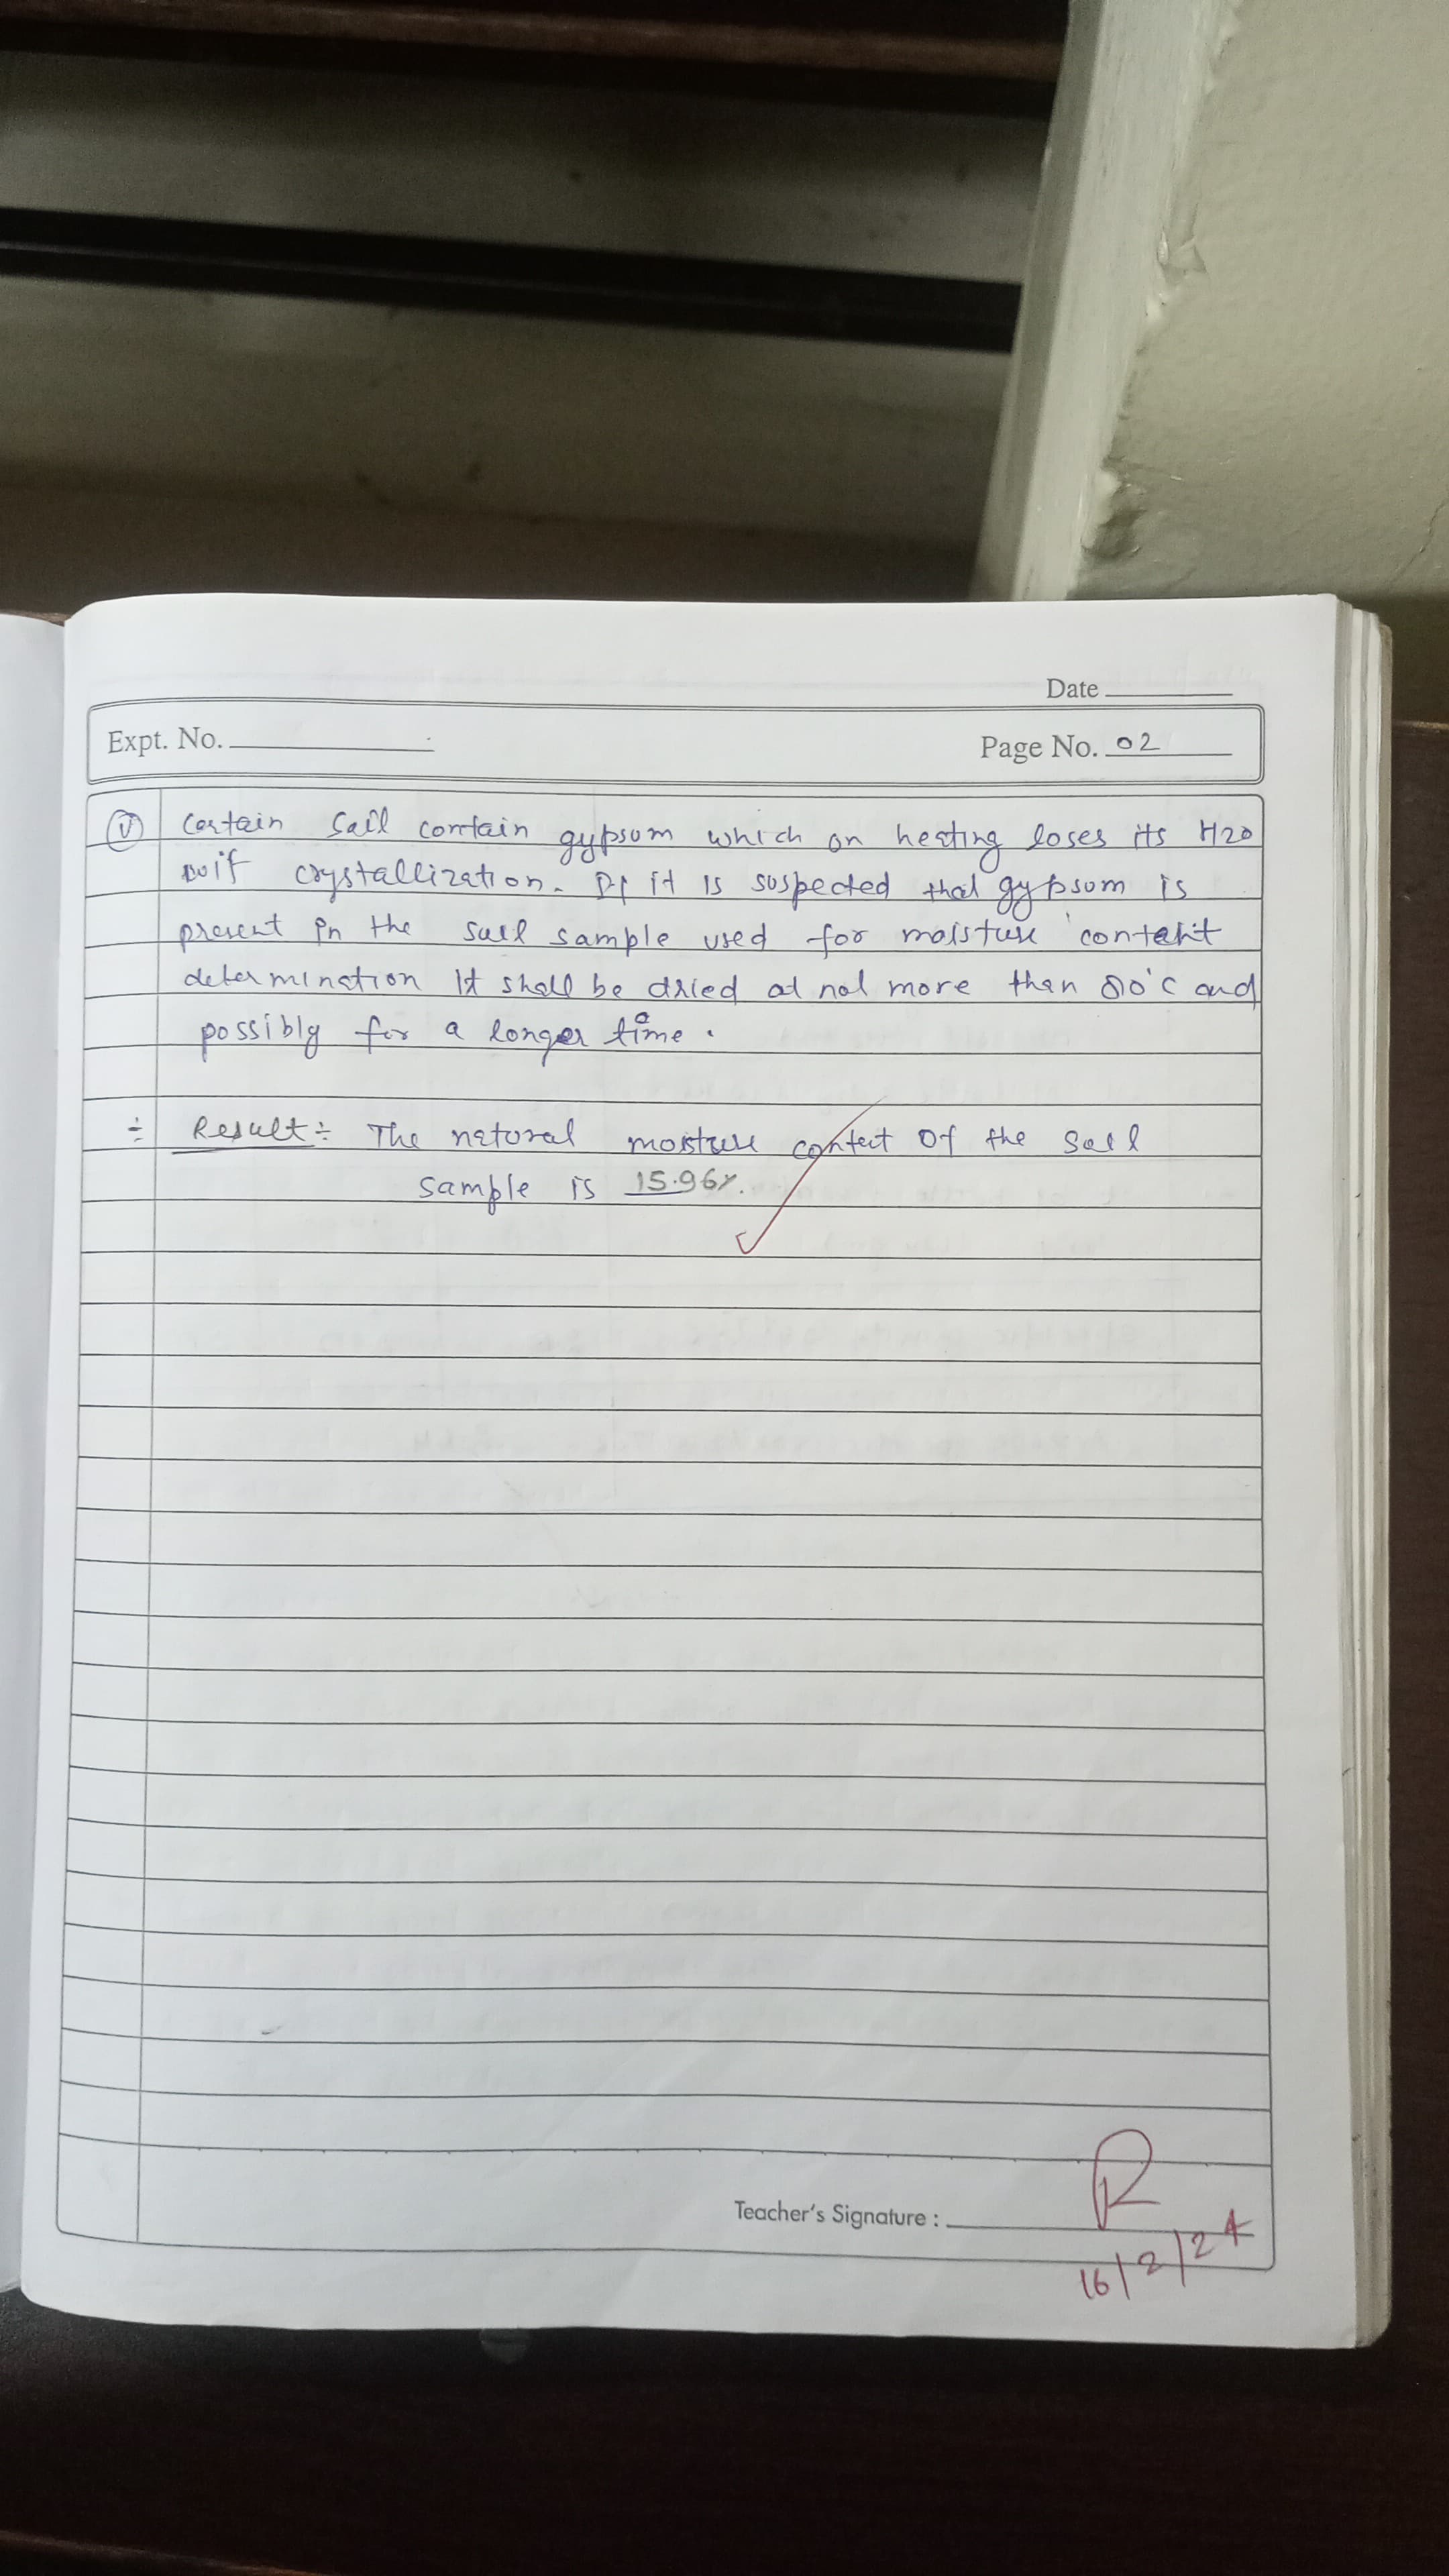 Date
Expt. No.
Page No. 02
(v) Certain Soil contain gypsum which on heating loses its H2O
crystallization. If it is suspected that gypsum is
present in the soil sample used for moisture content
determination It shall be dried at not more than 80°C and
possibly for a longer time.
÷ Result÷ The natural moisture content of the soil
sample is 15.96%.
Teacher's Signature :
R
16/2/24